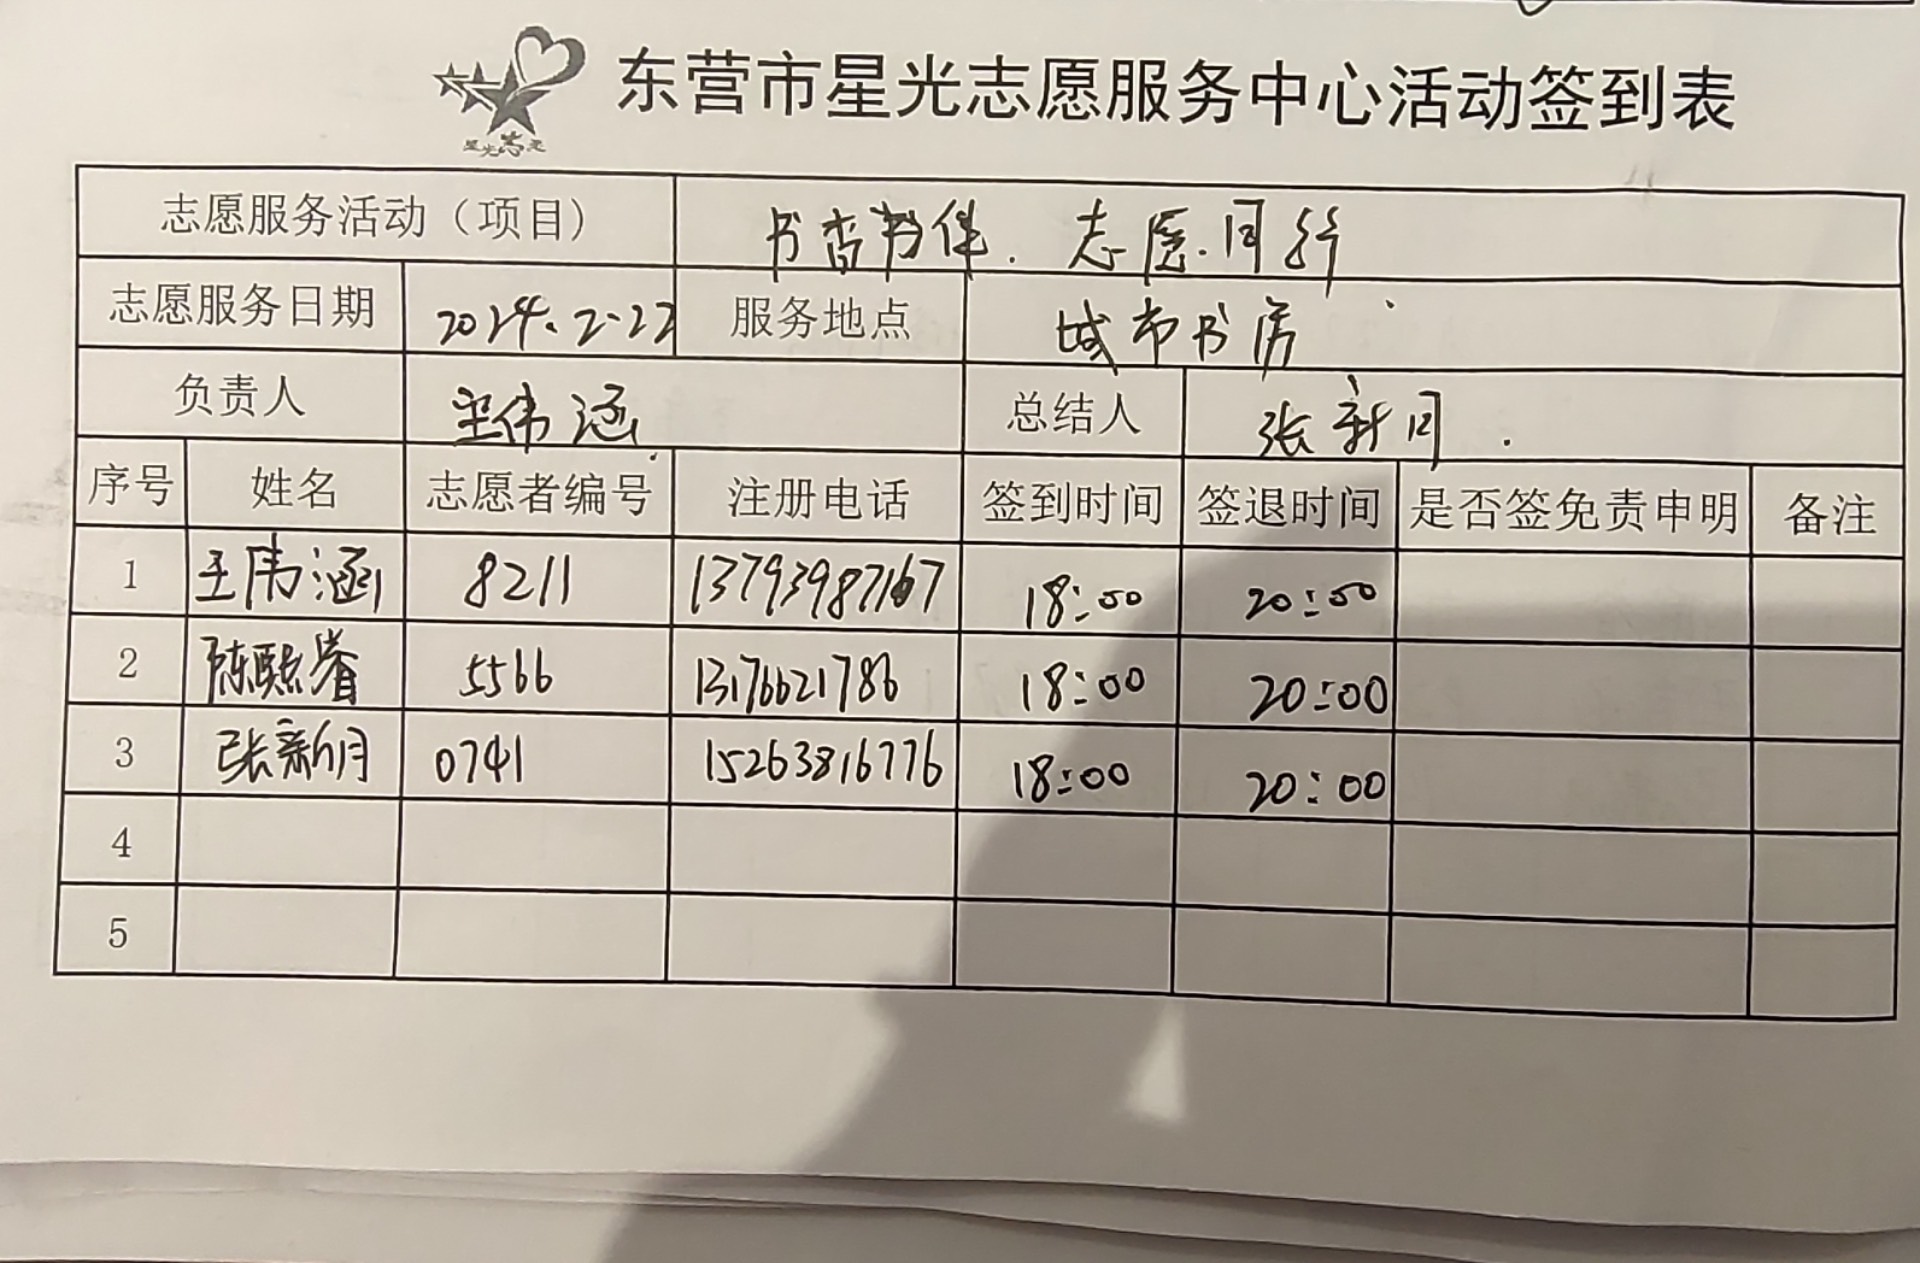 星光志愿
东营市星光志愿服务中心活动签到表
志愿服务活动（项目） 书香为伴．志愿同行
志愿服务日期 2024.2.22 服务地点 城市书房
负责人 王伟涵 总结人 张新月
序号 姓名 志愿者编号 注册电话 签到时间 签退时间 是否签免责申明 备注
1 王伟涵 8211 13793987167 18:00 20:00
2 陈熙 5566 13176621786 18:00 20:00
3 张新月 0741 15263816776 18:00 20:00
4
5